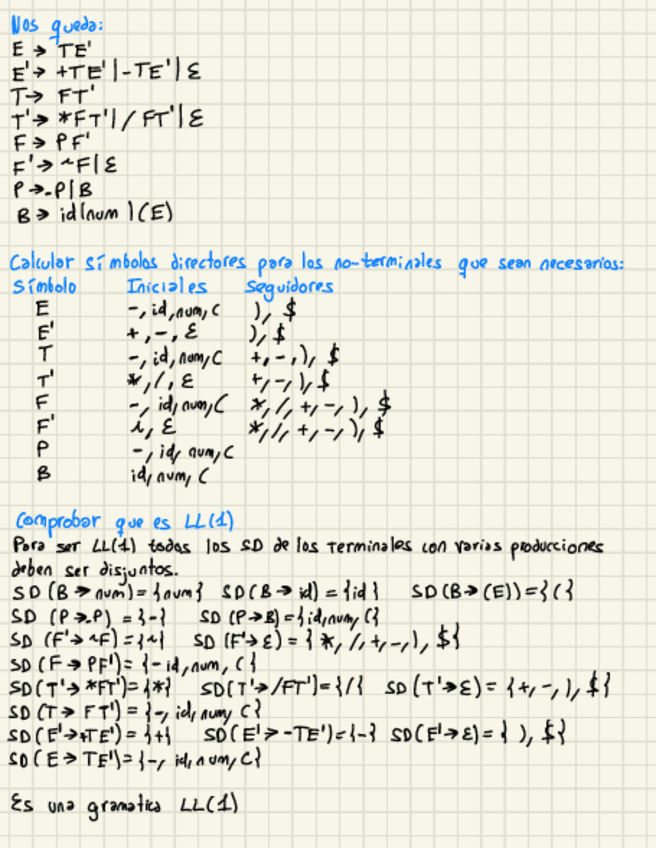 Nos queda:
E → TE'
E' → +TE' | -TE' | ε
T → FT'
T' → *FT' | / FT' | ε
F → PF'
F' → ~F | ε
P → -P | B
B → id | num | (E)
Calcular símbolos directores para los no-terminales que sean necesarios:
Símbolo Iniciales Seguidores
E -, id, num, ( ), $
E' +, -, ε ), $
T -, id, num, ( +, -, ), $
T' *, /, ε +, -, ), $
F -, id, num, ( *, /, +, -, ), $
F' ~, ε *, /, +, -, ), $
P -, id, num, (
B id, num, (
Comprobar que es LL(1)
Para ser LL(1) todos los SD de los terminales con varias producciones
deben ser disjuntos.
SD (B → num) = {num} SD (B → id) = {id} SD (B → (E)) = { ( }
SD (P → -P) = {-} SD (P → B) = {id, num, (}
SD (F' → ~F) = {~} SD (F' → ε) = { *, /, +, -, ), $}
SD (F → PF') = {- id, num, ( }
SD (T' → *FT') = {*} SD (T' → /FT') = {/} SD (T' → ε) = {+, -, ), $}
SD (T → FT') = {-, id, num, (}
SD (E' → +TE') = {+} SD (E' → -TE') = {-} SD (E' → ε) = { ), $}
SD (E → TE') = {-, id, num, (}
Es una gramatica LL(1)